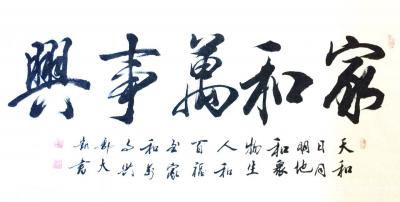 家和萬事興
天和
日月
明地
和萬
物生
人和
百福
至家
和万
事興
大
書